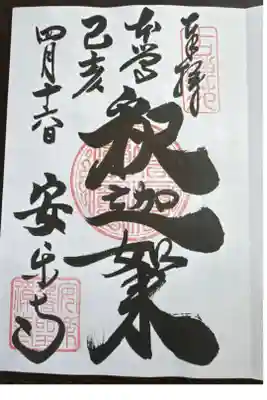 奉拝
本尊
釈迦如来
己亥
四月十六日
安楽寺